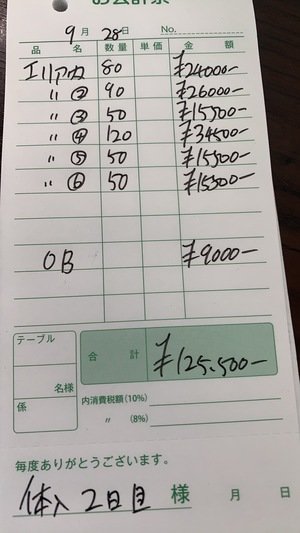 お会計票
9月 28日 No.
品名 数量 単価 金額
エリア 80 ¥24000-
〃 ② 90 ¥26000-
〃 ③ 50 ¥15500-
〃 ④ 120 ¥34500-
〃 ⑤ 50 ¥15500-
〃 ⑥ 50 ¥15500-
OB ¥9000-
テーブル
合計 ¥125.500-
名様
係
内消費税額(10%)
〃 (8%)
毎度ありがとうございます。
体入2日目 様 月 日